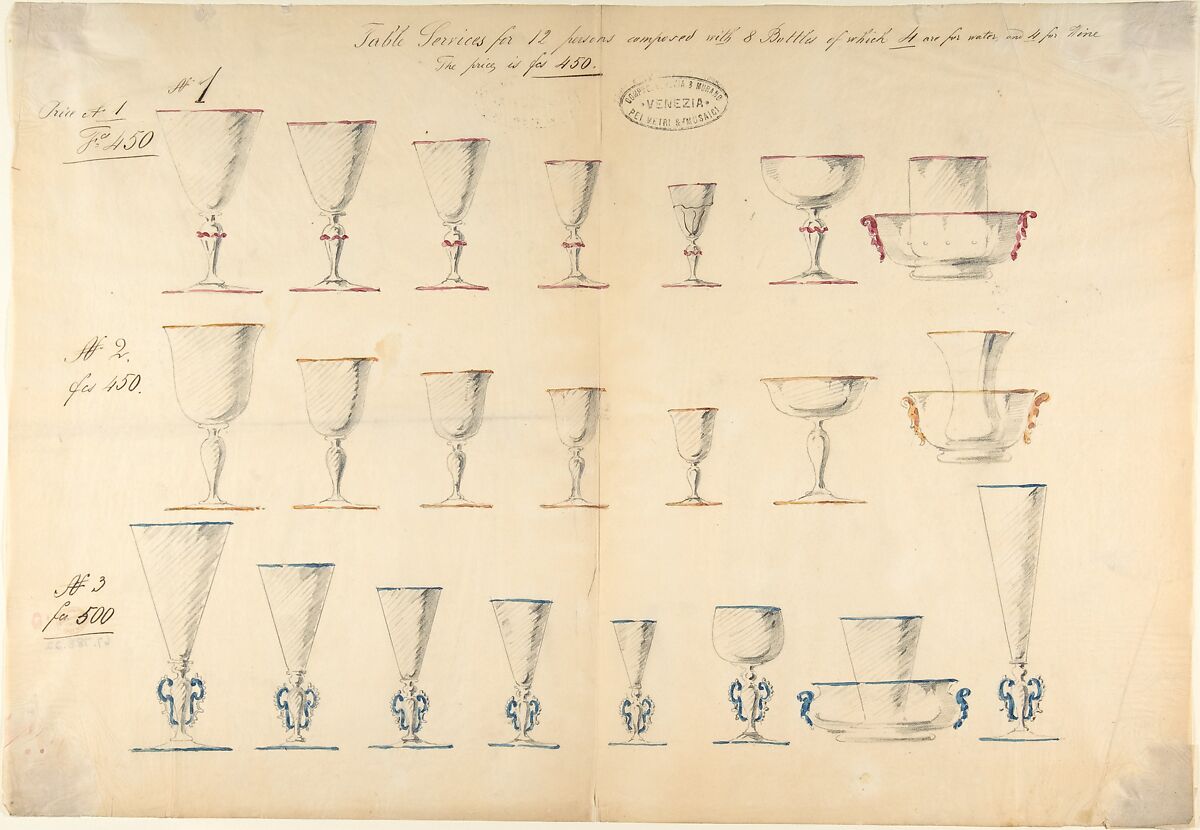 Table Services for 12 persons composed with 8 Bottles of which 4 are for water, and 4 for Wine
The price is fcs 450.
№ 1
Price № 1
Fcs 450
VENEZIA & MURANO
• VENEZIA •
PEI VETRI & MOSAICI
№ 2.
fcs 450.
№ 3
fcs 500